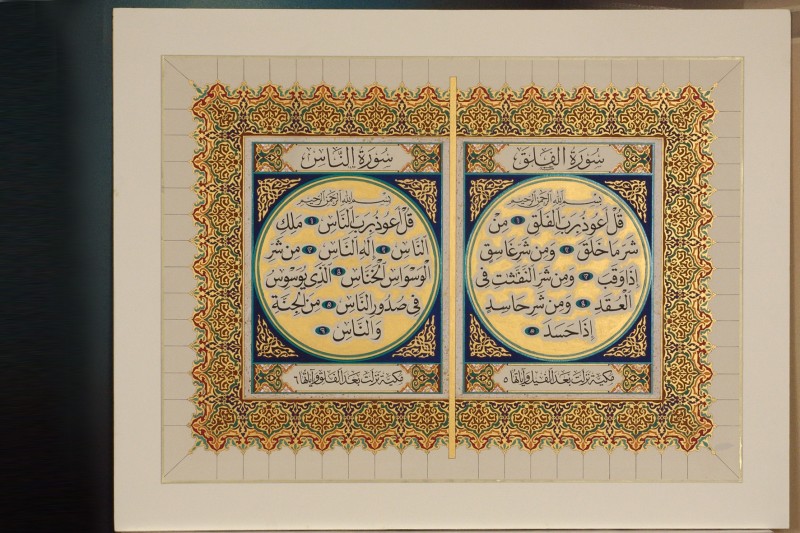 سورة الفلق
بسم الله الرحمن الرحيم
قل أعوذ برب الفلق ١ من
شر ما خلق ٢ ومن شر غاسق
إذا وقب ٣ ومن شر النفثت فى
العقد ٤ ومن شر حاسد
إذا حسد ٥
مكية نزلت بعد الفيل وآياتها ٥
سورة الناس
بسم الله الرحمن الرحيم
قل أعوذ برب الناس ١ ملك
الناس ٢ إله الناس ٣ من شر
الوسواس الخناس ٤ الذى يوسوس
فى صدور الناس ٥ من الجنة
والناس ٦
مكية نزلت بعد الفلق وآياتها ٦